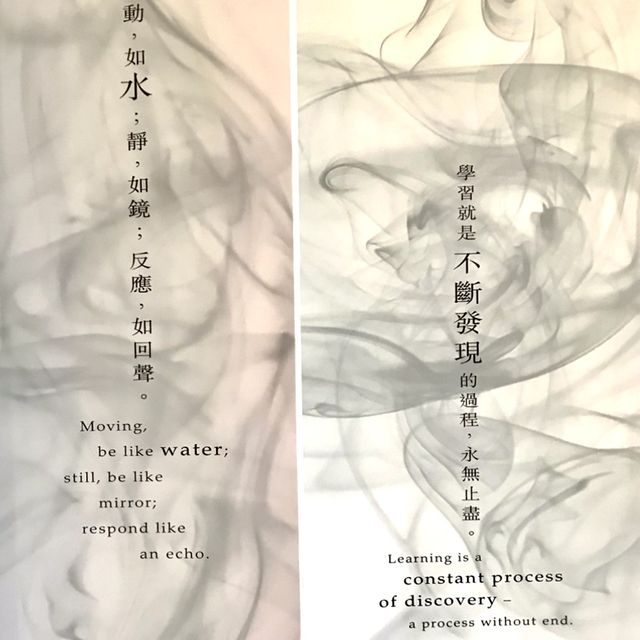 動，如水；靜，如鏡；反應，如回聲。
Moving,
be like water;
still, be like
mirror;
respond like
an echo.
學習就是不斷發現的過程，永無止盡。
Learning is a
constant process
of discovery –
a process without end.